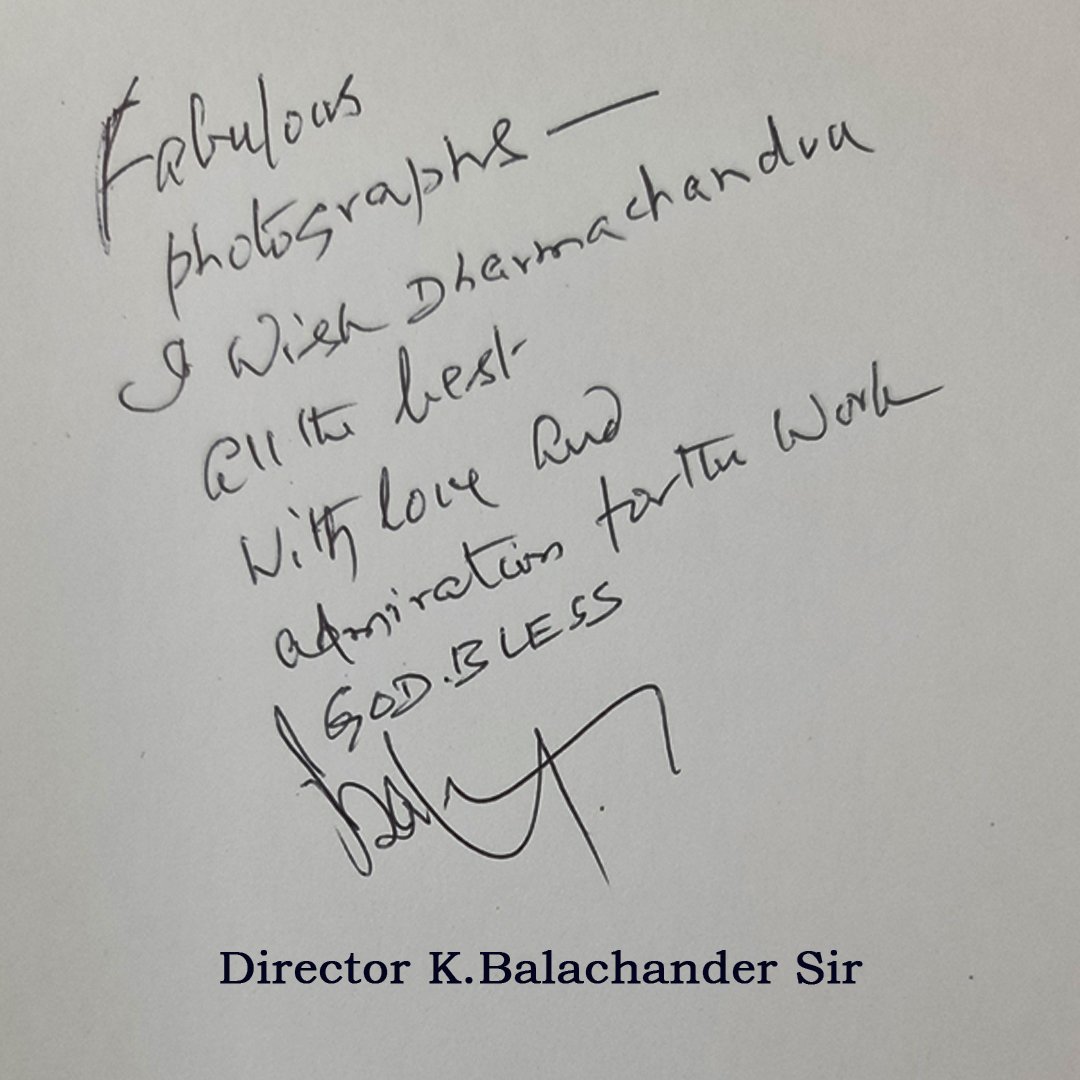 Fabulous
photographs —
I wish Dharmachandra
all the best
with love and
admiration for the work
GOD.BLESS
Director K.Balachander Sir